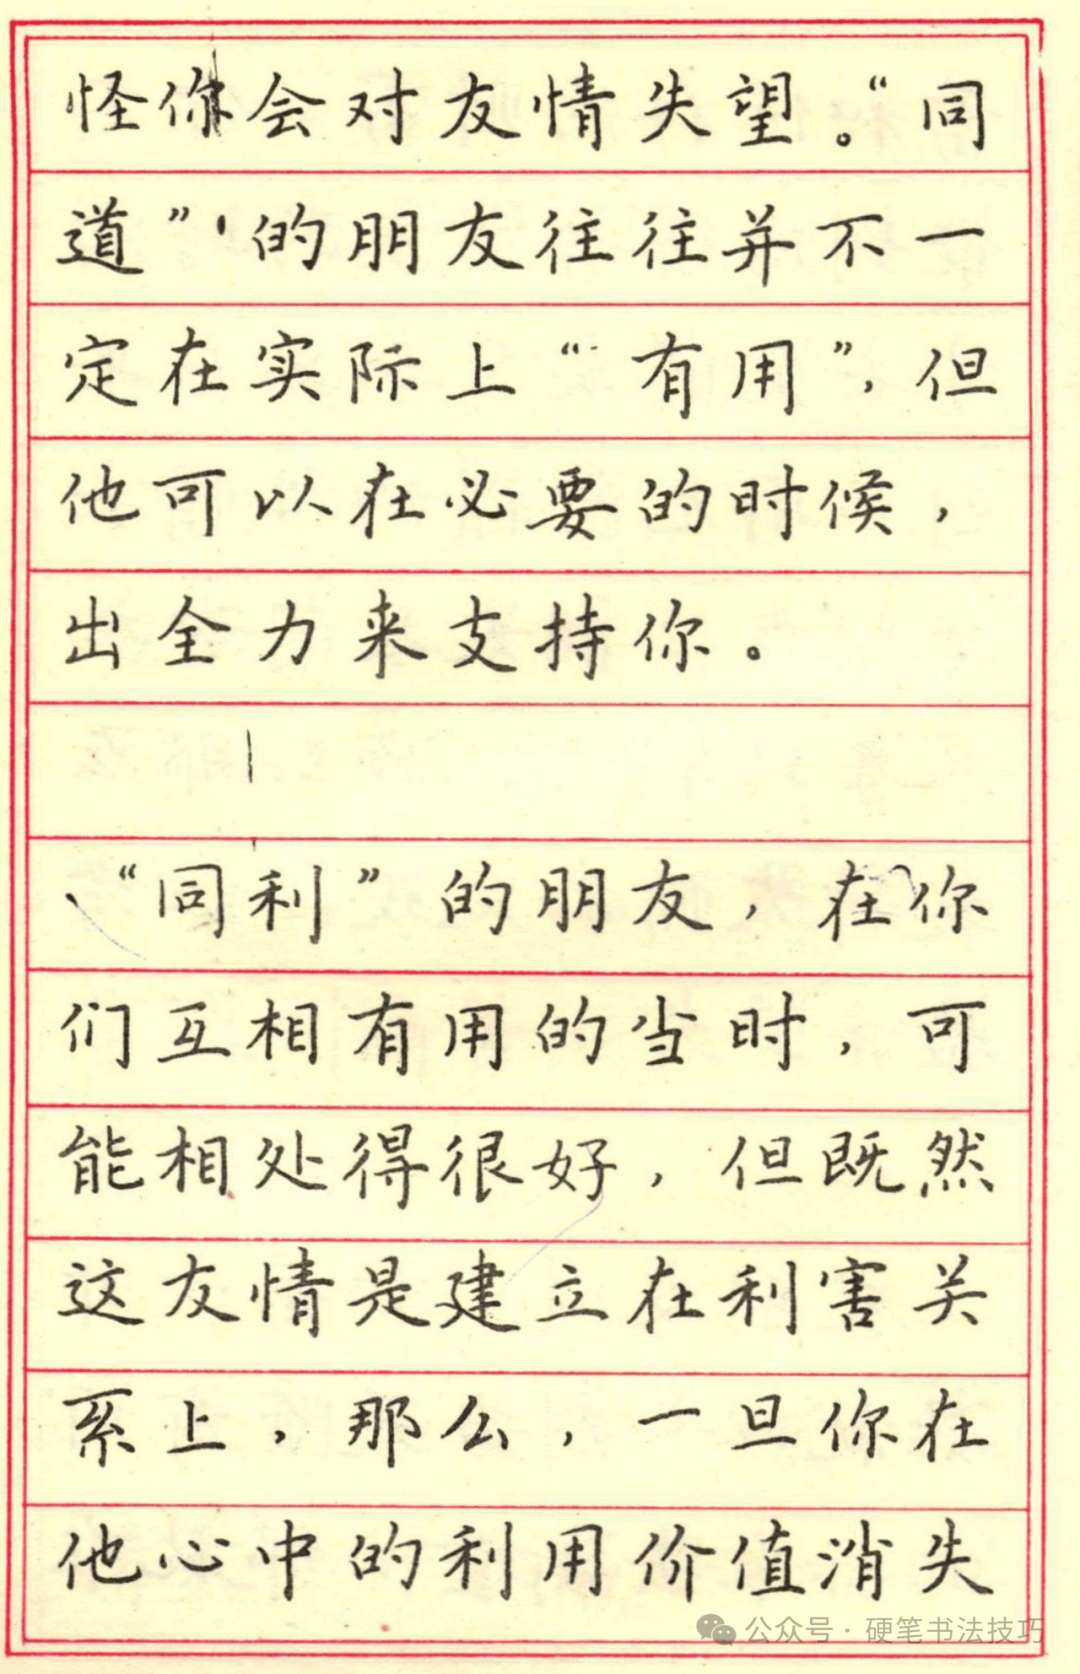 怪你会对友情失望。“同
道”的朋友往往并不一
定在实际上“有用”，但
他可以在必要的时候，
出全力来支持你。
“同利”的朋友，在你
们互相有用的当时，可
能相处得很好，但既然
这友情是建立在利害关
系上，那么，一旦你在
他心中的利用价值消失
公众号·硬笔书法技巧